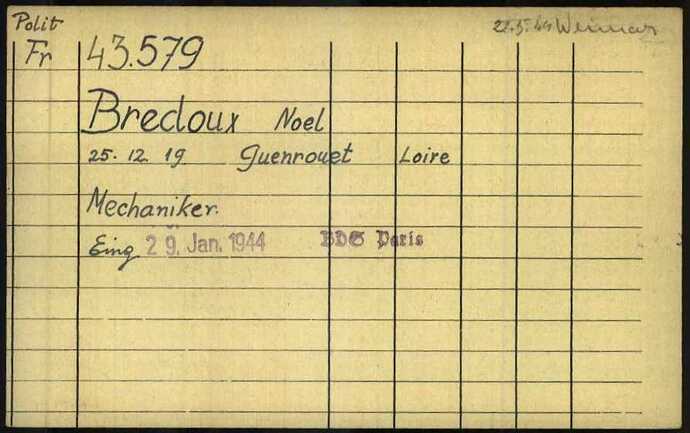 Polit
22.5.44 Weimar
Fr 43.579
Bredoux Noel
25. 12 19 Guenrouet Loire
Mechaniker.
Eing 29. Jan. 1944 BDS Paris